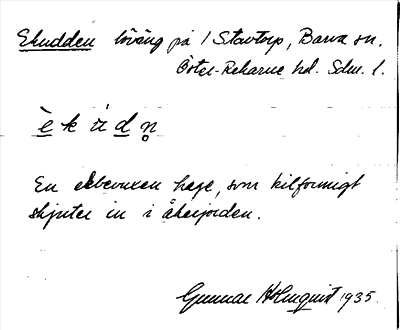 Ekudden löväng på / Stavtorp, Barva sn.
Öster-Rekarne hd. Sdm. l.
è k ù d n̥
En ekbevuxen hage, som kilformigt
skjuter in i åkerjorden.
Gunnar Holmquist 1935.